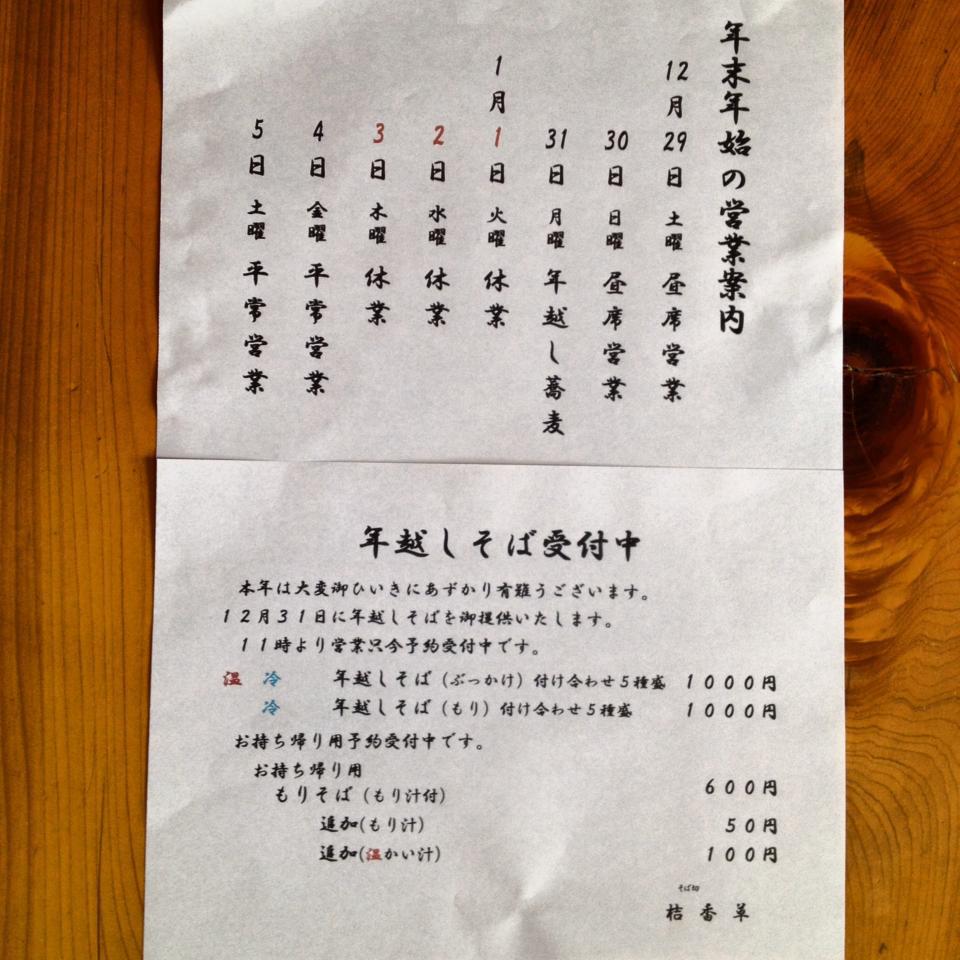 年末年始の営業案内
12月29日 土曜 昼席営業
30日 日曜 昼席営業
31日 月曜 年越し蕎麦
1月1日 火曜 休業
2日 水曜 休業
3日 木曜 休業
4日 金曜 平常営業
5日 土曜 平常営業
年越しそば受付中
本年は大変御ひいきにあずかり有難うございます。
12月31日に年越しそばを御提供いたします。
11時より営業只今予約受付中です。
温 冷 年越しそば(ぶっかけ)付け合わせ5種盛 1000円
冷 年越しそば(もり)付け合わせ5種盛 1000円
お持ち帰り用予約受付中です。
お持ち帰り用
もりそば(もり汁付) 600円
追加(もり汁) 50円
追加(温かい汁) 100円
そば切
桔香草